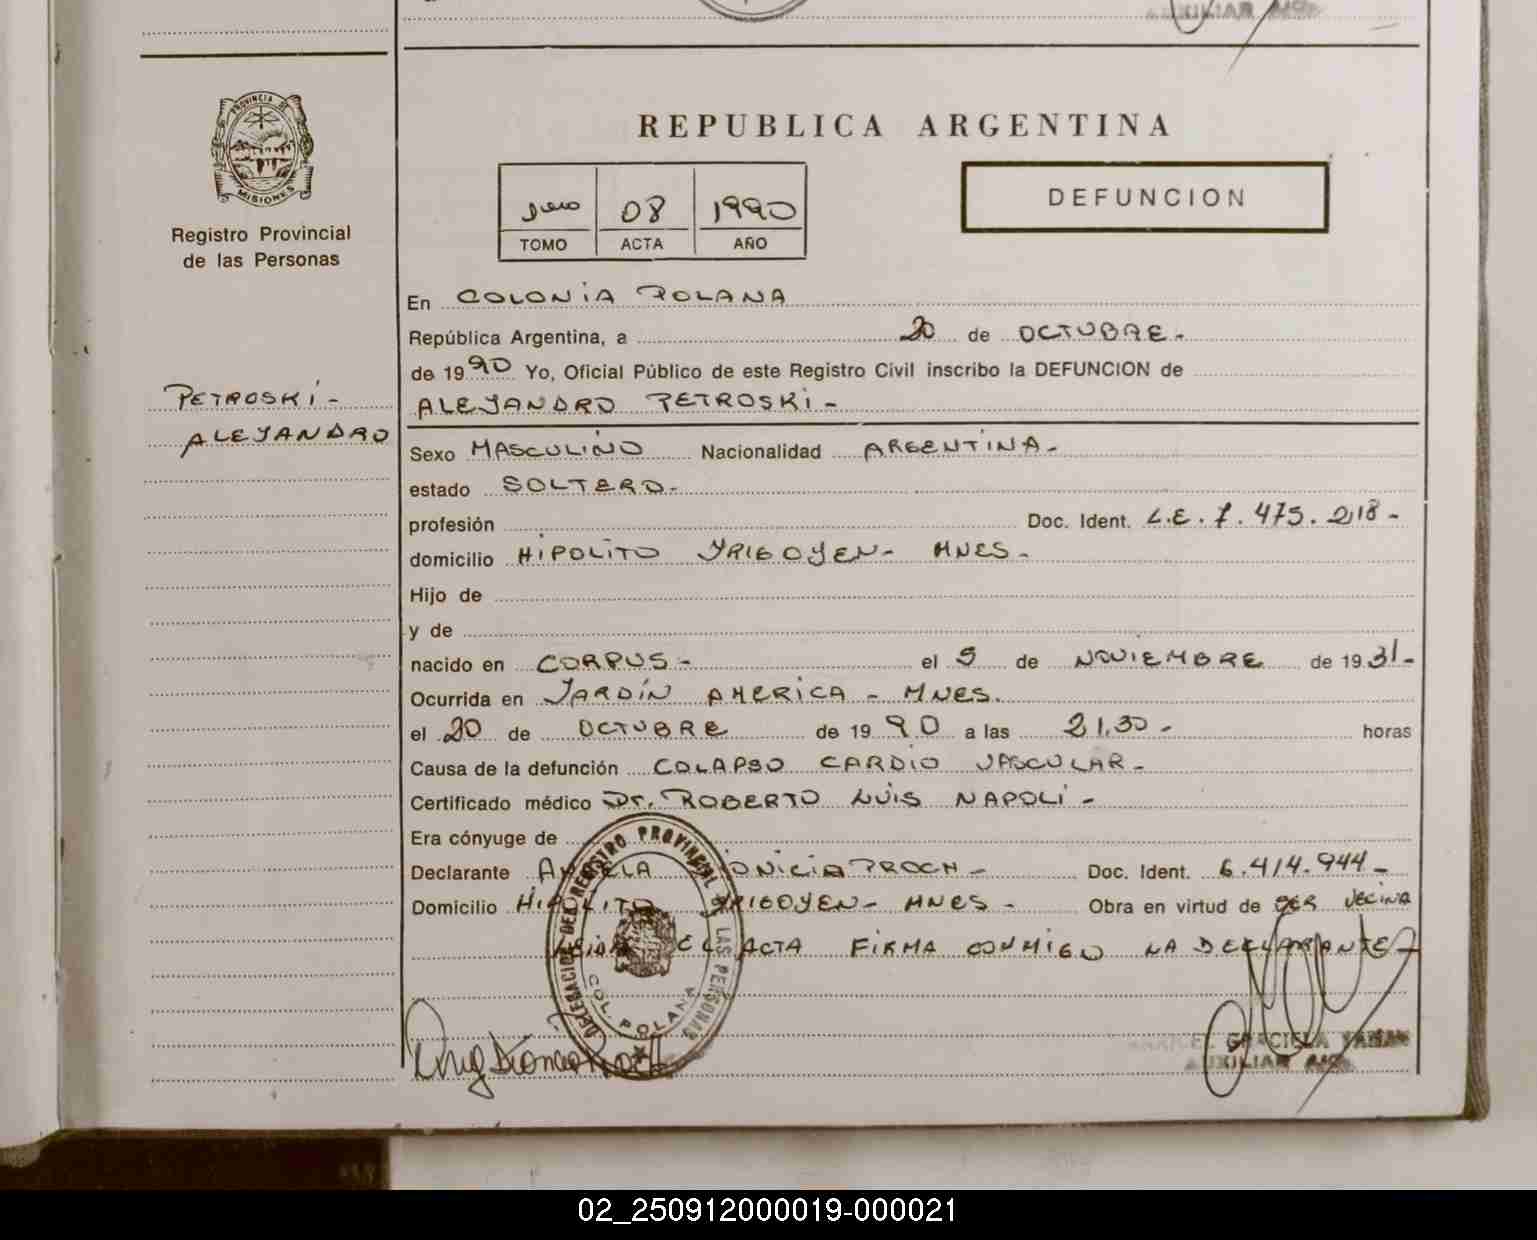 AUXILIAR
PROVINCIA DE
MISIONES
Registro Provincial
de las Personas
REPUBLICA ARGENTINA
DEFUNCION
08 1990
TOMO ACTA AÑO
PETROSKI -
ALEJANDRO
En COLONIA POLANA
República Argentina, a 20 de OCTUBRE -
de 1990 Yo, Oficial Público de este Registro Civil inscribo la DEFUNCION de
ALEJANDRO PETROSKI -
Sexo MASCULINO Nacionalidad ARGENTINA -
estado SOLTERO -
profesión Doc. Ident. L.E. 7.475.218 -
domicilio HIPOLITO YRIGOYEN - MNES -
Hijo de
y de
nacido en CORPUS - el 5 de NOVIEMBRE de 1931 -
Ocurrida en JARDIN AMERICA - MNES.
el 20 de OCTUBRE de 1990 a las 21.30 - horas
Causa de la defunción COLAPSO CARDIO VASCULAR -
Certificado médico Dr. ROBERTO LUIS NAPOLI -
Era cónyuge de
Declarante PROCH - Doc. Ident. 6.414.944 -
Domicilio HIPOLITO YRIGOYEN - MNES - Obra en virtud de SER VECINA
EL ACTA FIRMA CONMIGO LA DECLARANTE
DELEGACION DEL REGISTRO PROVINCIAL DE LAS PERSONAS
COL. POLANA
GRACIELA
AUXILIAR
02_250912000019-000021